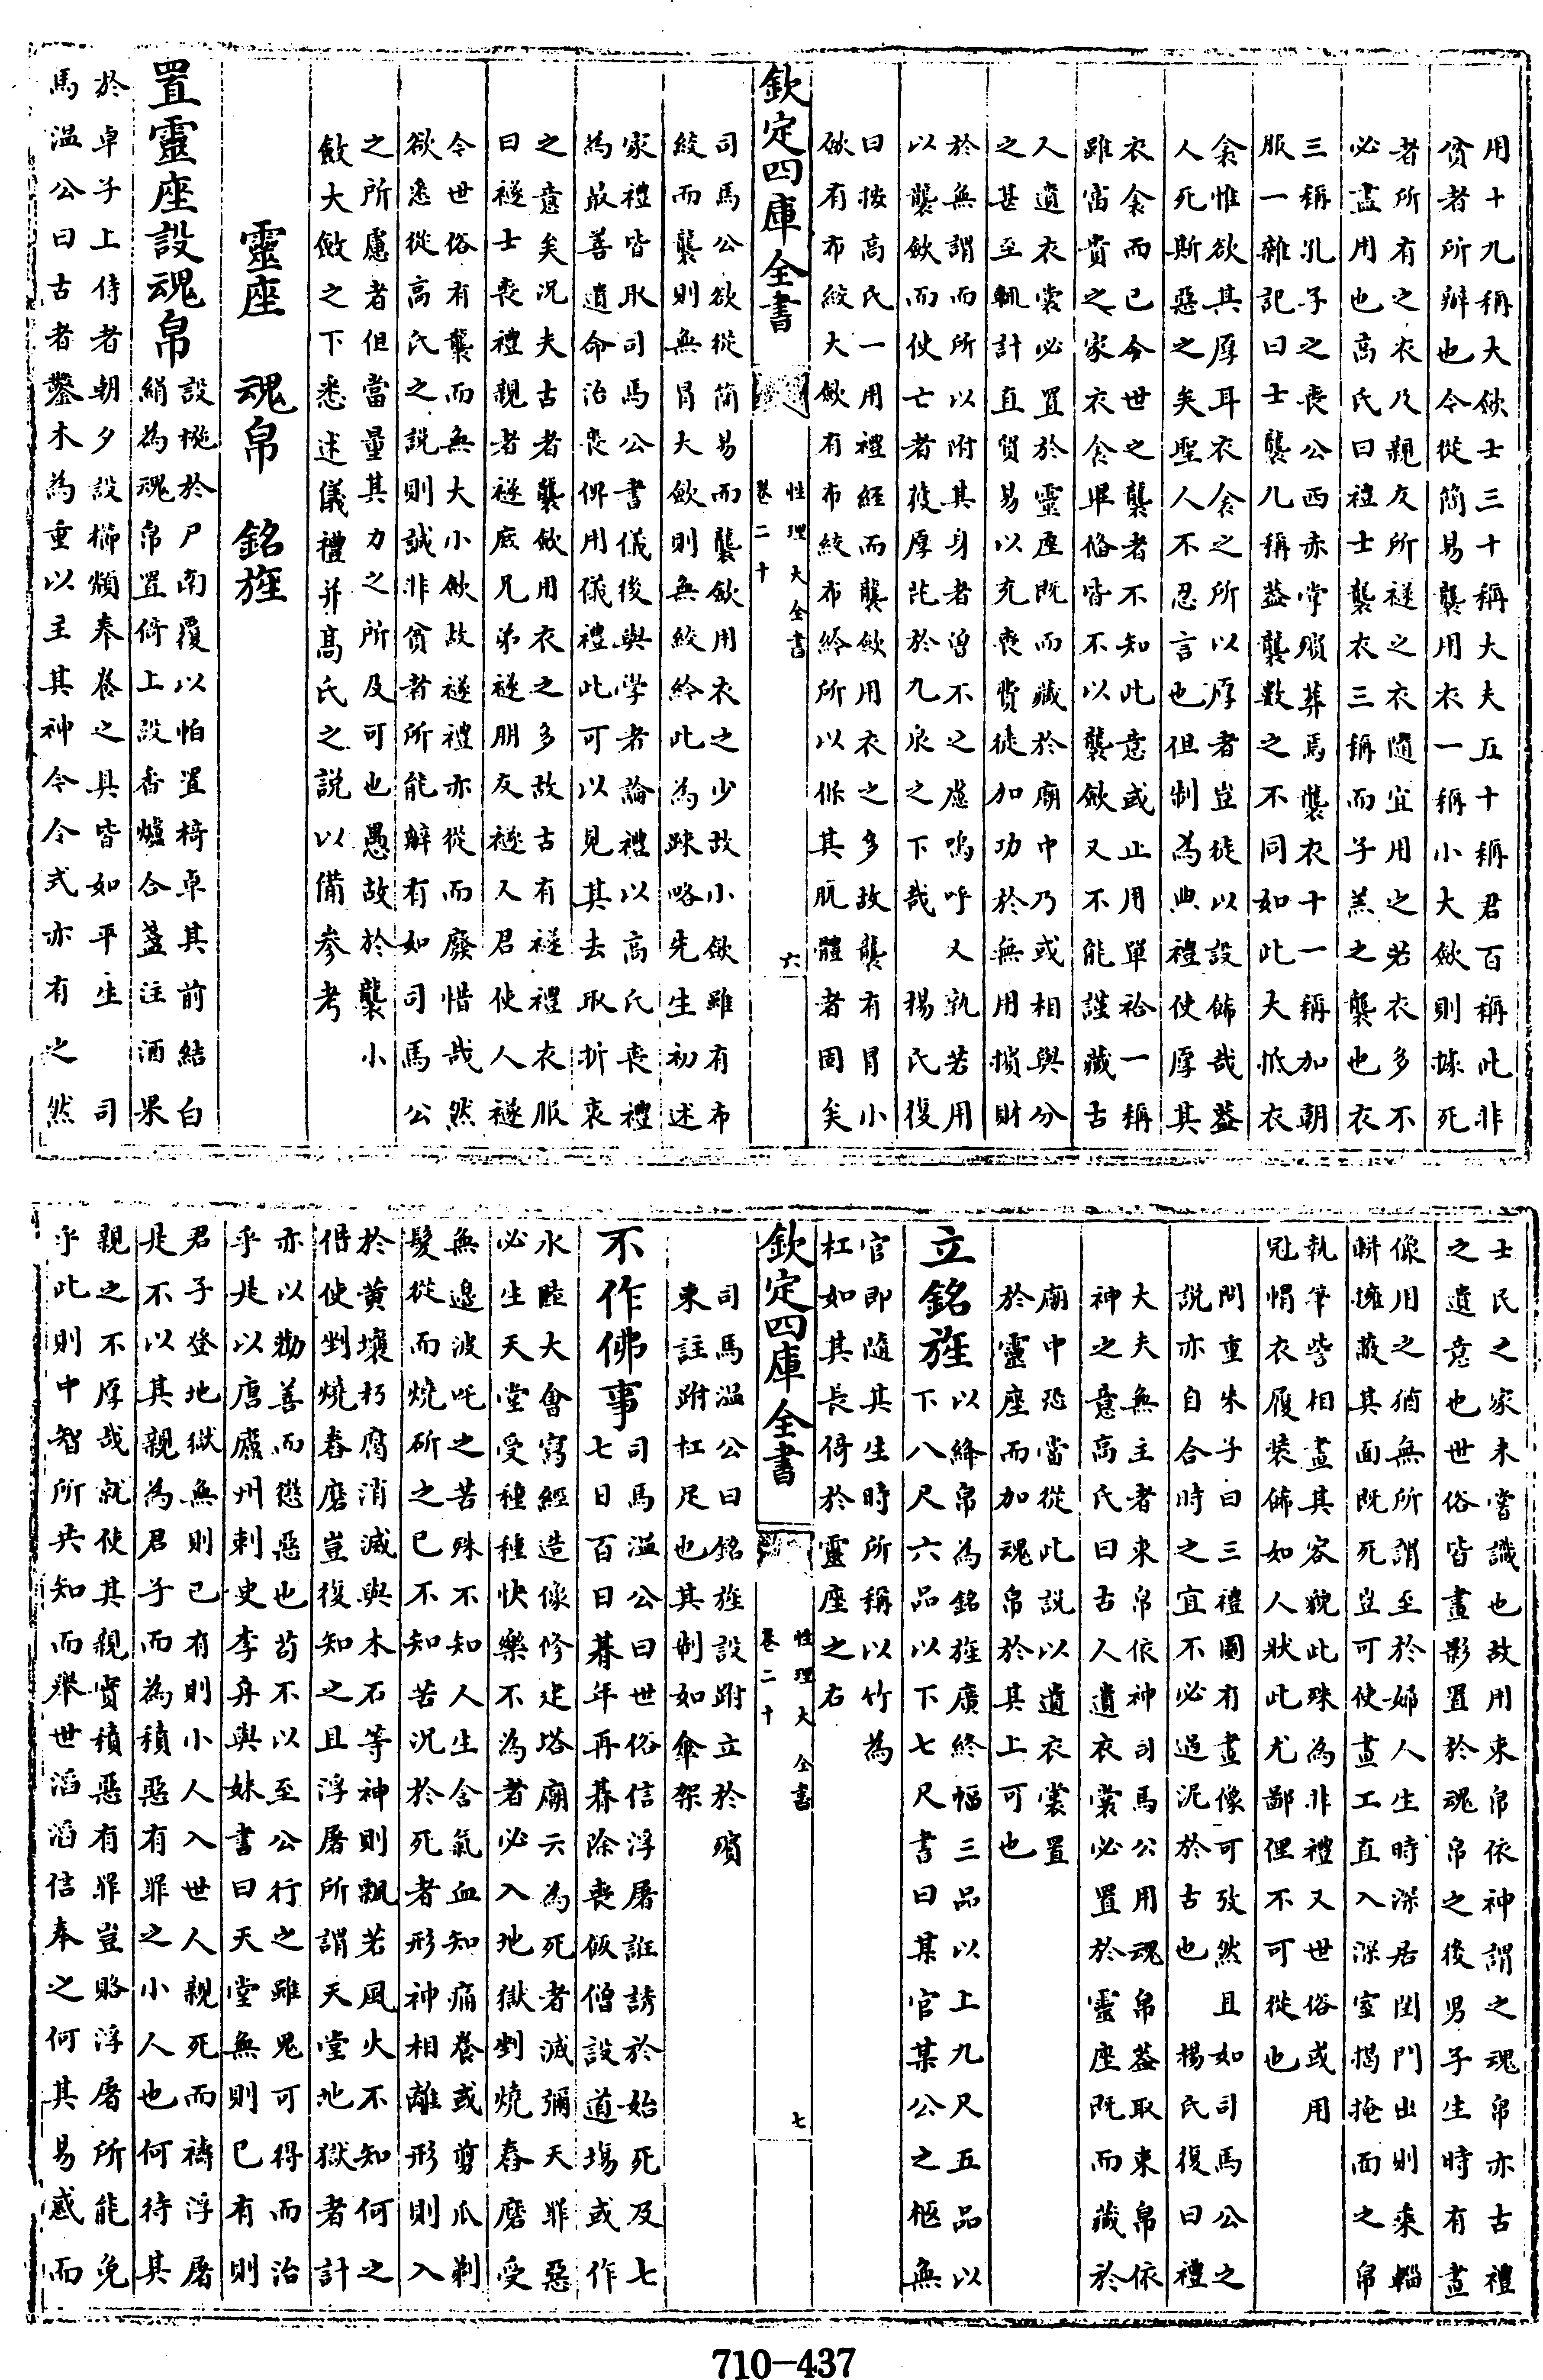 用十九稱大斂士三十稱大夫五十稱君百稱此非
貧者所辦也今從簡易襲用衣一稱小大斂則據死
者所有之衣及親友所襚之衣隨宜用之若衣多不
必盡用也高氏曰禮士襲衣三稱而子羔之襲也衣
三稱孔子之喪公西赤掌殯葬焉襲衣十一稱加朝
服一雜記曰士襲九稱葢襲數之不同如此大抵衣
衾惟欲其厚耳衣衾之所以厚者豈徒以設飾哉葢
人死斯惡之矣聖人不忍言也但制為典禮使厚其
衣衾而已今世之襲者不知此意或止用單袷一稱
雖富貴之家衣衾畢備皆不以襲斂又不能謹藏古
人遺衣裳必置於靈座既而藏於廟中乃或相與分
之甚至輒計直貿易以充喪費徒加功於無用損財
於無謂而所以附其身者曾不之慮嗚呼又孰若用
以襲斂而使亡者獲厚庇於九泉之下哉 楊氏復
曰按高氏一用禮經而襲斂用衣之多故襲有冒小
斂有布絞大斂有布絞布紟所以保其肌體者固矣
欽定四庫全書
性理大全書
卷二十
六
司馬公欲從簡易而襲斂用衣之少故小斂雖有布
絞而襲則無冒大斂則無絞紟此為踈略先生初述
家禮皆取司馬公書儀後與學者論禮以高氏喪禮
為最善遺命治喪俾用儀禮此可以見其去取折衷
之意矣況夫古者襲斂用衣之多故古有襚禮衣服
曰襚士喪禮親者襚庶兄弟襚朋友襚又君使人襚
今世俗有襲而無大小斂故襚禮亦從而廢惜哉然
欲悉從高氏之說則誠非貧者所能辦有如司馬公
之所慮者但當量其力之所及可也愚故於襲小
斂大斂之下悉述儀禮并髙氏之說以備參考
靈座 魂帛 銘旌
置靈座設魂帛
設椸於尸南覆以帕置椅卓其前結白
絹為魂帛置倚上設香爐合盞注酒果
於卓子上侍者朝夕設櫛頮奉養之具皆如平生 司
馬溫公曰古者鑿木為重以主其神今令式亦有之然
士民之家未嘗識也故用束帛依神謂之魂帛亦古禮
之遺意也世俗皆畫影置於魂帛之後男子生時有畫
像用之猶無所謂至於婦人生時深居閨門出則乘輜
軿擁蔽其面既死豈可使畫工直入深室揭掩面之帛
執筆訾相畫其容貌此殊為非禮又世俗或用
冠帽衣履裝飾如人狀此尤鄙俚不可從也
問重朱子曰三禮圖有畫像可攷然且如司馬公之
說亦自合時之宜不必過泥於古也 楊氏復曰禮
大夫無主者束帛依神司馬公用魂帛葢取束帛依
神之意高氏曰古人遺衣裳必置於靈座既而藏於
廟中恐當從此說以遺衣裳置
於靈座而加魂帛於其上可也
立銘旌
以絳帛為銘旌廣終幅三品以上九尺五品以
下八尺六品以下七尺書曰某官某公之柩無
官即隨其生時所稱以竹為
杠如其長倚於靈座之右
欽定四庫全書
性理大全書
卷二十
七
司馬溫公曰銘旌設跗立於殯
東註跗杠足也其制如傘架
不作佛事
司馬溫公曰世俗信浮屠誑誘於始死及七
七日百日朞年再朞除喪飯僧設道塲或作
水陸大會寫經造像修建塔廟云為死者滅彌天罪惡
必生天堂受種種快樂不為者必入地獄剉燒舂磨受
無邉波吒之苦殊不知人生含氣血知痛養或剪爪剃
髮從而燒斫之已不知苦況於死者形神相離形則入
於黃壤朽腐消滅與木石等神則飄若風火不知何之
借使剉燒舂磨豈復知之且浮屠所謂天堂地獄者計
亦以勸善而懲惡也苟不以至公行之雖鬼可得而治
乎是以唐廬州刺史李舟與妹書曰天堂無則已有則
君子登地獄無則已有則小人入世人親死而禱浮屠
是不以其親為君子而為積惡有罪之小人也何待其
親之不厚哉就使其親實積惡有罪豈賂浮屠所能免
乎此則中智所共知而舉世滔滔信奉之何其易惑而
710-437